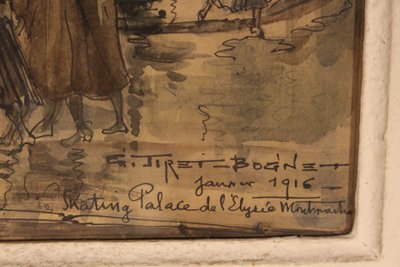 G. TIRET-BOGNET
Janvier 1916
Skating Palace de l'Elysée Montmartre